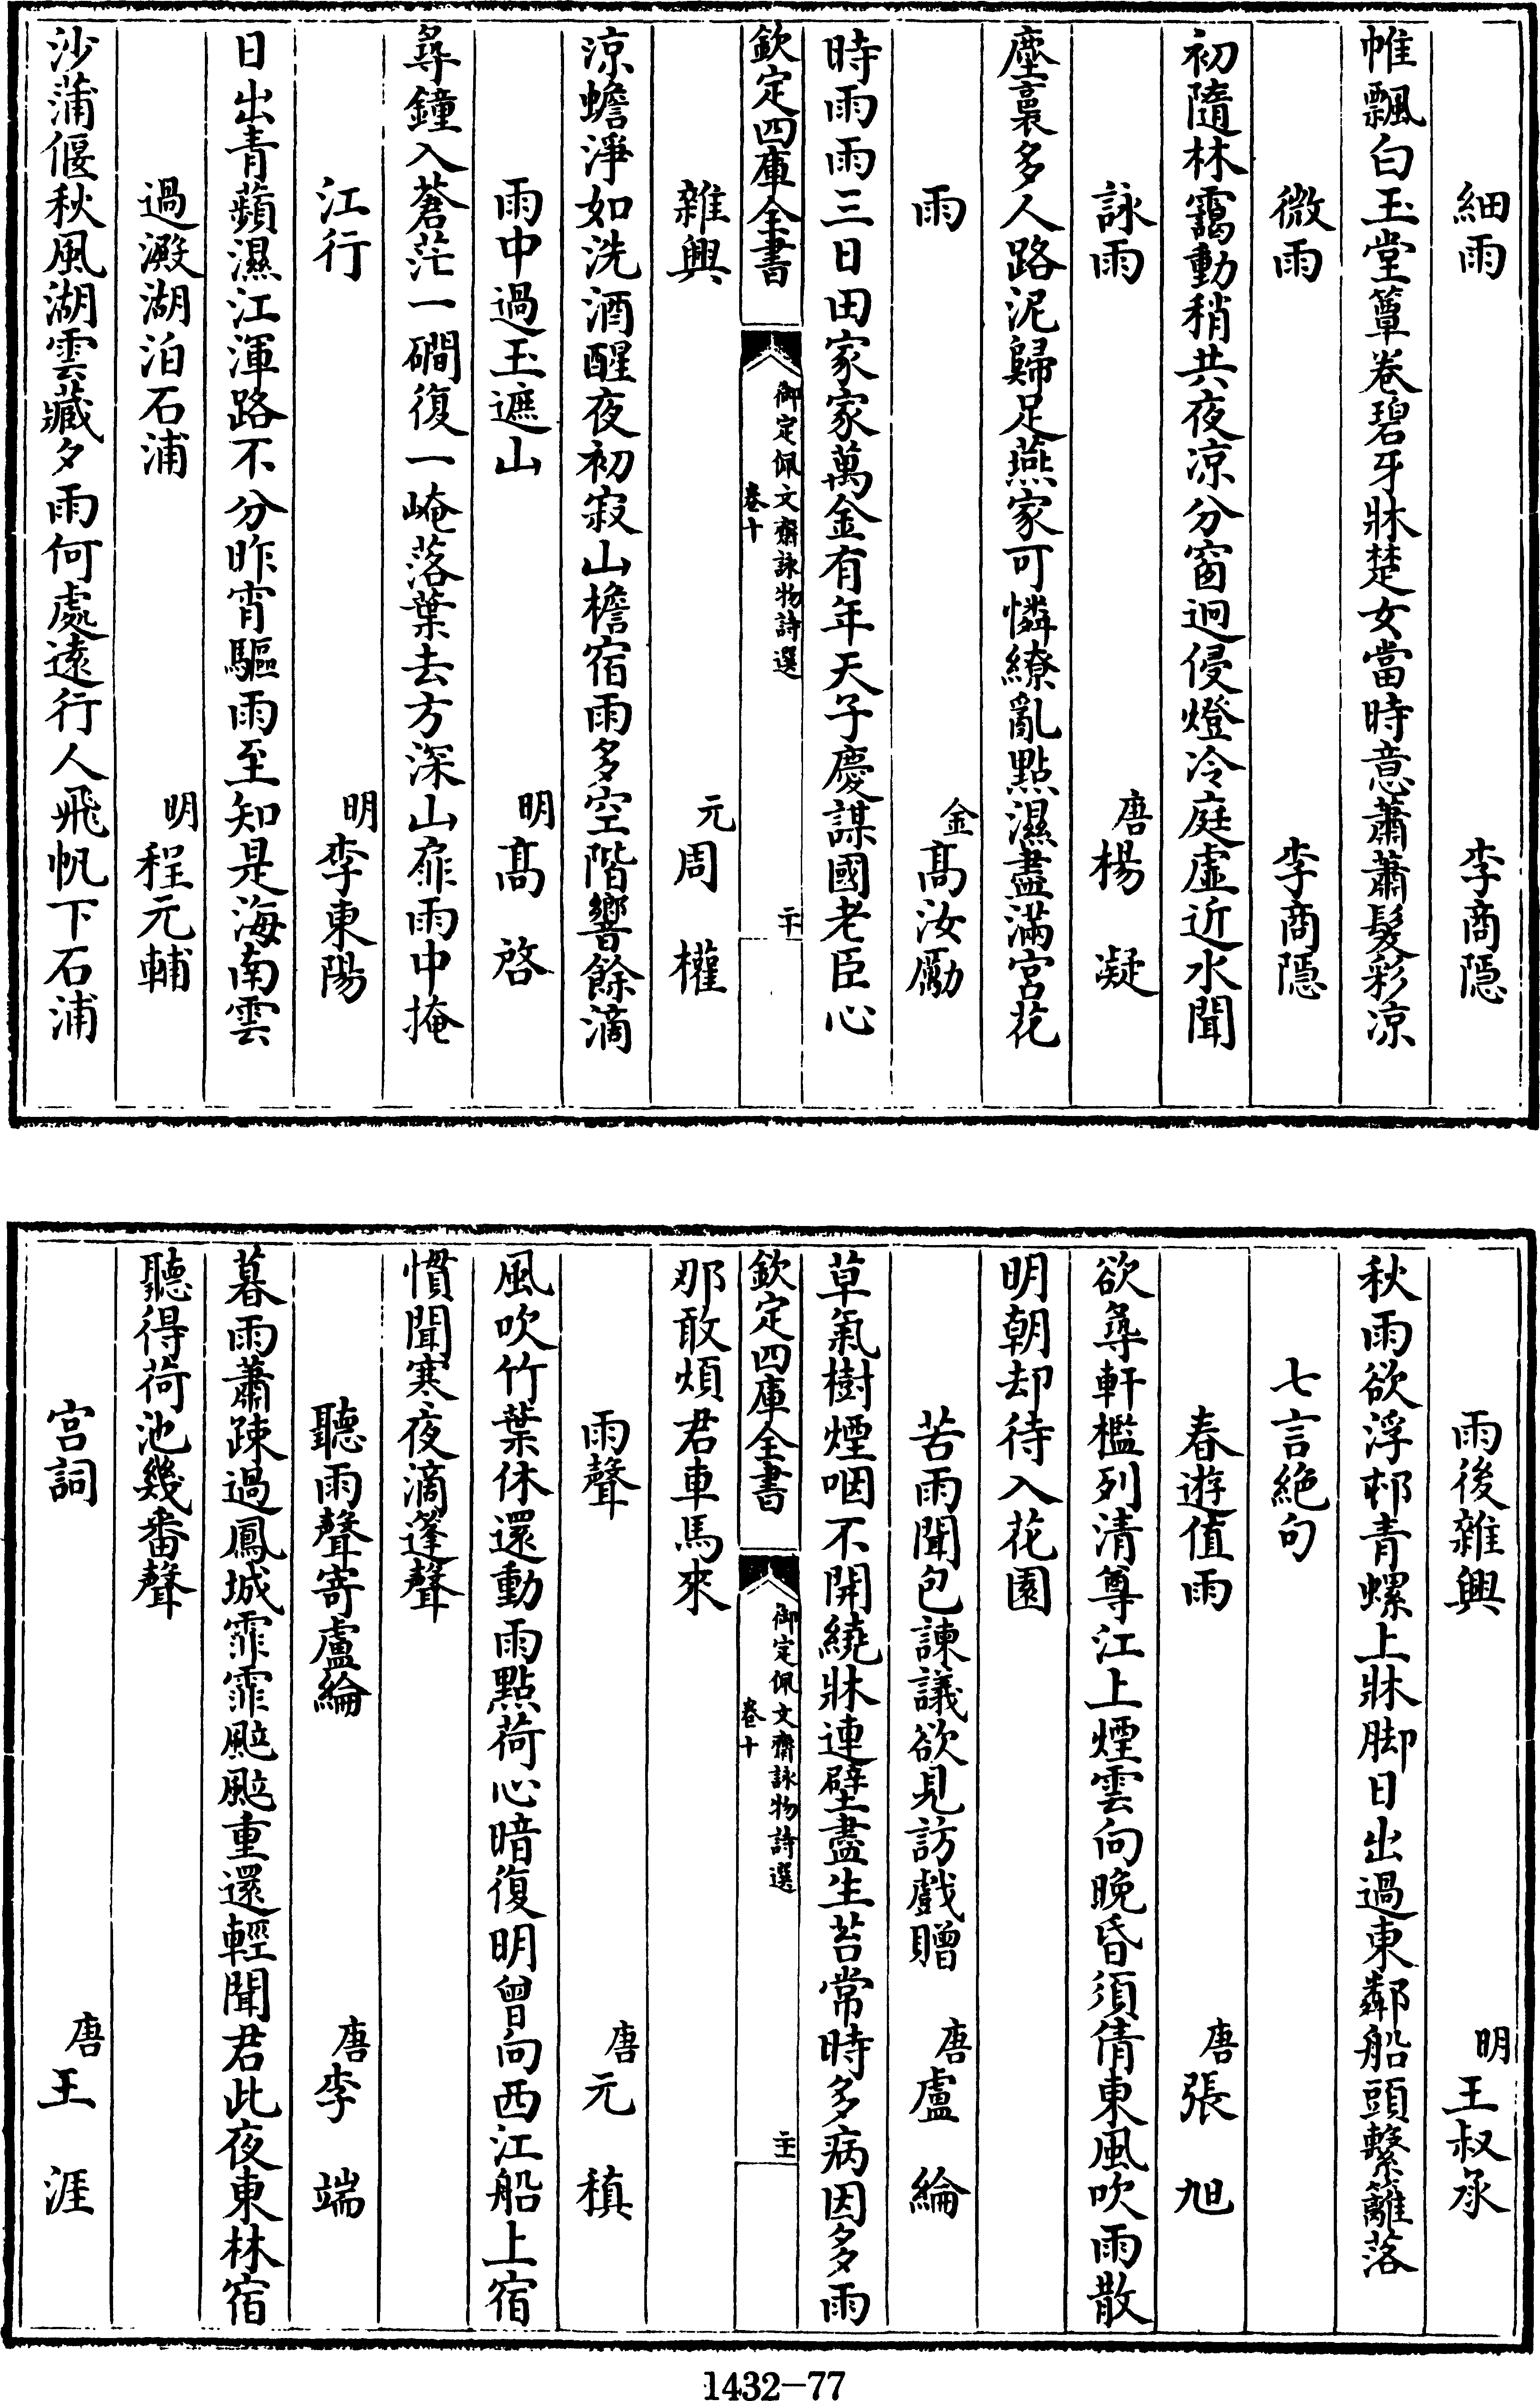 細雨 李商隱
帷飄白玉堂簟卷碧牙牀楚女當時意蕭蕭髮彩凉
微雨 李商隱
初隨林靄動稍共夜凉分窗迥侵燈冷庭虛近水聞
詠雨 唐楊凝
塵裛多人路泥歸足燕家可憐繚亂點濕盡滿宮花
雨 金髙汝勵
時雨雨三日田家家萬金有年天子慶謀國老臣心
欽定四庫全書 御定佩文齋詠物詩選 卷十 二十
雜興 元周權
涼蟾淨如洗酒醒夜初寂山檐宿雨多空階響餘滴
雨中過玉遮山 明髙啓
尋鐘入蒼茫一磵復一崦落葉去方深山扉雨中掩
江行 明李東陽
日出青蘋濕江渾路不分昨宵驅雨至知是海南雲
過澱湖泊石浦 明程元輔
沙蒲偃秋風湖雲藏夕雨何處遠行人飛帆下石浦
雨後雜興 明王叔承
秋雨欲浮邨青螺上牀脚日出過東鄰船頭繫籬落
七言絶句
春遊值雨 唐張旭
欲尋軒檻列清尊江上煙雲向晚昏須倩東風吹雨散
明朝却待入花園
苦雨聞包諫議欲見訪戲贈 唐盧綸
草氣樹煙咽不開繞牀連壁盡生苔常時多病因多雨
欽定四庫全書 御定佩文齋詠物詩選 卷十 二十一
那敢煩君車馬來
雨聲 唐元稹
風吹竹葉休還動雨點荷心暗復明曾向西江船上宿
慣聞寒夜滴篷聲
聽雨聲寄盧綸 唐李端
暮雨蕭疎過鳳城霏霏颭颭重還輕聞君此夜東林宿
聽得荷池幾番聲
宫詞 唐王涯
1432-77